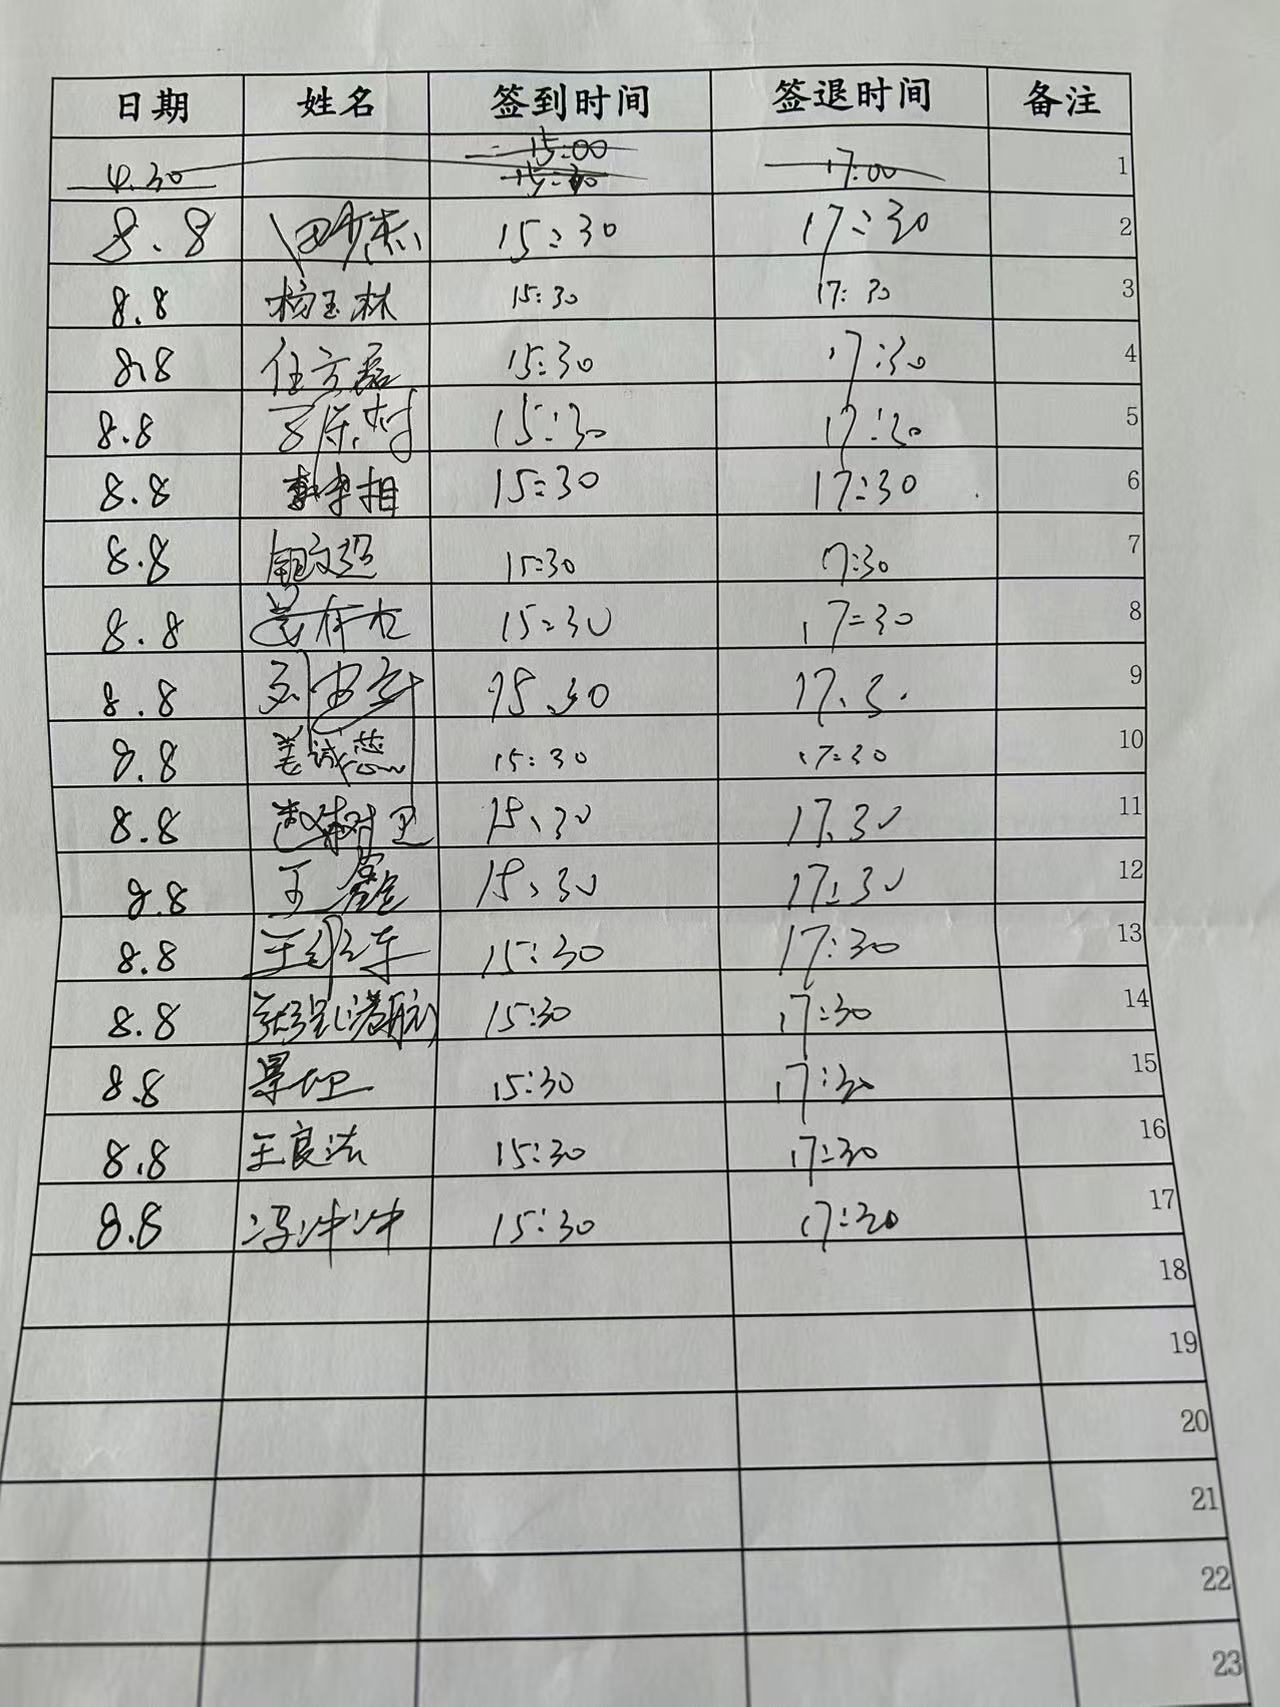 日期 姓名 签到时间 签退时间 备注
4.30 15:00 15:30 17:00 1
8.8 田少杰 15:30 17:30 2
8.8 杨玉林 15:30 17:30 3
8.8 任方磊 15:30 17:30 4
8.8 15:30 17:30 5
8.8 15:30 17:30 6
8.8 15:30 17:30 7
8.8 15:30 17:30 8
8.8 15.30 17.3. 9
8.8 姜诚蕊 15:30 17:30 10
8.8 赵树卫 15.30 17.30 11
8.8 王鑫 15.30 17:30 12
8.8 15:30 17:30 13
8.8 张强(港航) 15:30 17:30 14
8.8 15:30 17:30 15
8.8 王良法 15:30 17:30 16
8.8 冯冲冲 15:30 17:30 17
18
19
20
21
22
23